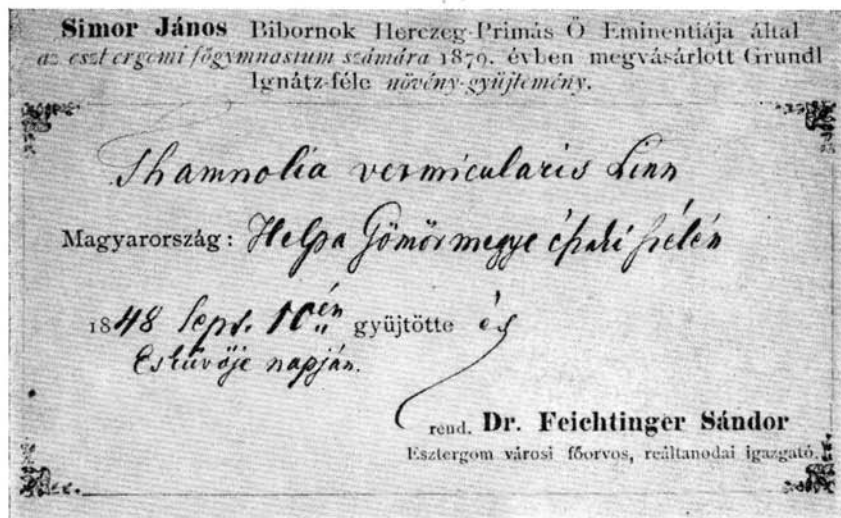 Simor János Bibornok Herczeg-Primás Ő Eminentiája által
az esztergomi főgymnasium számára 1879. évben megvásárlott Grundl
Ignátz-féle növény-gyüjtemény.
Thamnolia vermicularis Linn
Magyarország: Helpa Gömör megye északi szélén
1848 Sept. 10én gyüjtötte és
Esküvője napján.
rend. Dr. Feichtinger Sándor
Esztergom városi főorvos, reáltanodai igazgató.